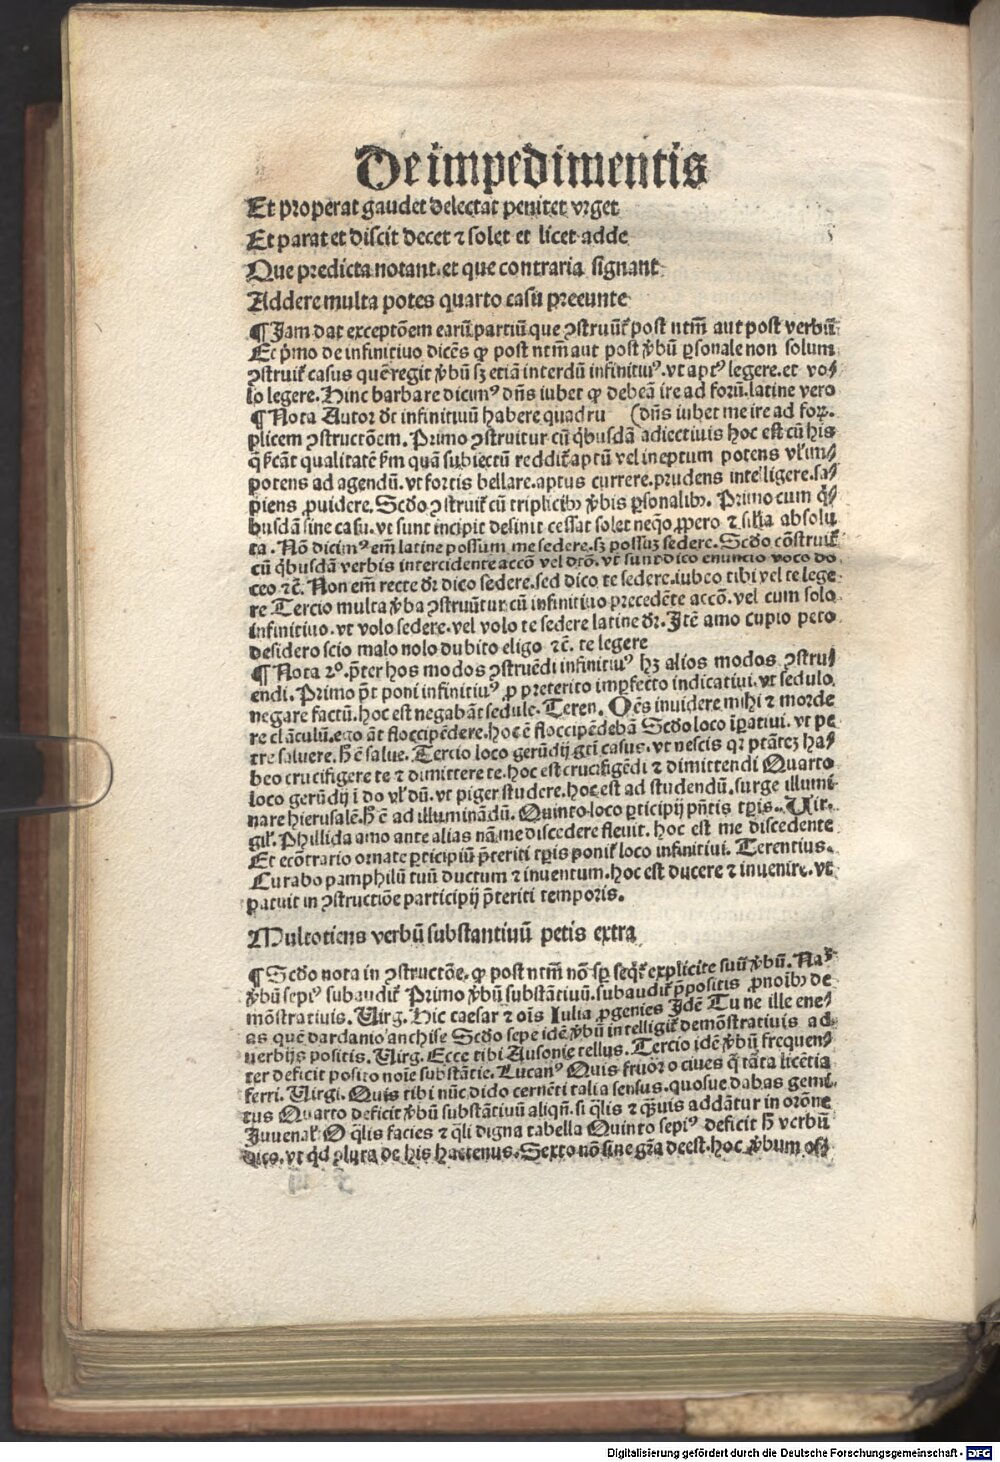 De impedimentis
Et properat gaudet delectat penitet vrget
Et parat et discit decet ⁊ solet et licet adde
Que predicta notant. et que contraria signant
Addere multa potes quarto casu preeunte
¶ Jam dat exceptõem earũ partiũ que ꝯstruũt̃ post ntm̃ aut post verbũ
Et p̃mo de infinitiuo dicẽs ꝙ post ntm̃ aut post v̾bũ ꝑsonale non solum
ꝯstruit̃ casus quẽ regit v̾bũ sꝫ etiã interdũ infinitiuꝰ. vt aptꝰ legere. et vo⸗
lo legere. Hinc barbare dicimꝰ dñs iubet ꝙ debeã ire ad forũ. latine vero
¶ Nota Autor dt̃ infinitiuũ habere quadru (dñs iubet me ire ad foꝝ.
plicem ꝯstructõem. Primo ꝯstruitur cũ q̇busdã adiectiuis hoc est cũ his
potens ad agendũ. vt fortis bellare. aptus currere. prudens intelligere. sa⸗
piens ꝓuidere. Scdo ꝯstruit̃ cũ triplicibꝫ v̾bis ꝑsonalibꝫ. Primo cum q̇⸗
busdã sine casu. vt sunt incipit desinit cessat solet neq̃o ꝓpero ⁊ sil̃ia absolu
ta. Nõ dicimꝰ em̃ latine possum me sedere. sꝫ possuꝫ sedere. Scdo cõstruit̃
cũ q̇busdã verbis intercidente accõ vel dtõ. vt sunt dico enuncio voco do
ceo ⁊c̃. Non em̃ recte dr̃ dico sedere. sed dico te sedere. iubeo tibi vel te lege
re Tercio multa v̾ba ꝯstruũtur cũ infinitiuo precedẽte accõ. vel cum solo
infinitiuo. vt volo sedere. vel volo te sedere latine dr̃. Jtẽ amo cupio peto
desidero scio malo nolo dubito eligo ⁊c̃. te legere
¶ Nota 2º. p̃ter hos modos ꝯstruẽdi infinitiuꝰ hꝫ alios modos ꝯstru⸗
endi. Primo p̃t poni infinitiuꝰ ꝓ preterito imꝑfecto indicatiui. vt sedulo
negare factũ. hoc est negabãt sedule. Teren. Oẽs inuidere mihi ⁊ morde
re clãculũ. ego ãt floccipẽdere. hoc ẽ floccipẽdebã Scdo loco ĩꝑatiui. vt pe
tre saluere. h̃ ẽ salue. Tercio loco gerũdij gti̇̃ casus. vt nescis qꝛ ptãteꝫ ha⸗
beo crucifigere te ⁊ dimittere te. hoc est crucifigẽdi ⁊ dimittendi Quarto
loco gerũdij ĩ do vl̃ dũ. vt piger studere. hoc est ad studendũ. surge illumi⸗
nare hierusalẽ. h̃ ẽ ad illuminãdũ. Quinto loco ꝑticipij pñtis tꝑis. Uir⸗
gil̃. Phillida amo ante alias nã me discedere fleuit. hoc est me discedente
Et ecõtrario ornate ꝑticipiũ p̃teriti tꝑis ponit̃ loco infinitiui. Terentius.
Curabo pamphilũ tuũ ductum ⁊ inuentum. hoc est ducere ⁊ inuenire. vt
patuit in ꝯstructiõe participij p̃teriti temporis.
Multotiens verbũ substantiuũ petis extra
¶ Scdo nota in ꝯstructõe. ꝙ post ntm̃ nõ sꝑ seq̇t̃ explicite suũ v̾bũ. Nã
v̾bũ sepiꝰ subaudit̃ Primo v̾bũ substãtiuũ. subaudit̃ p̃positis ꝓnoĩbꝫ de
mõstratiuis. Uirg. Hic caesar ⁊ oĩs Iulia ꝓgenies Jdẽ Tu ne ille ene⸗
as quẽ dardanio anchise Scdo sepe idẽ v̾bũ intelligit̃ demõstratiuis ad
uerbijs positis. Uirg. Ecce tibi Ausonie tellus. Tercio idẽ v̾bũ frequen⸗
ter deficit posito noĩe substãtie. Lucanꝰ Quis furor o ciues q̃ tãta licẽtia
ferri. Uirgi. Quis tibi nũc dido cernẽti talia sensus. quosue dabas gemi⸗
tus Quarto deficit v̾bũ substãtiuũ aliqñ. si q̃lis ⁊ q̃uis addãtur in orõne
Juuenal̃ O q̃lis facies ⁊ q̃li digna tabella Quinto sepiꝰ deficit h̃ verbũ
dico. vt q̇d plura de his hactenus. Sexto nõ sine gr̃a deest. hoc v̾bum